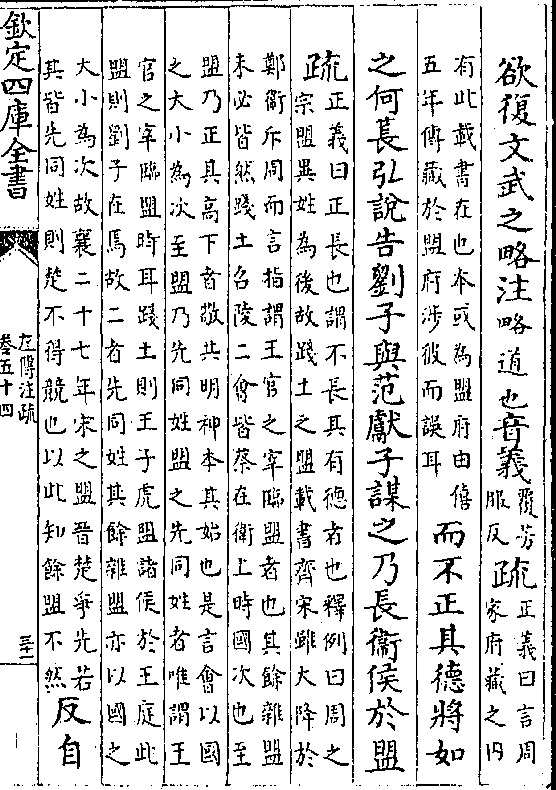 欲復文武之略注略道也音義覆芳服反疏正義曰言周家府藏之內
有此載書在也本或為盟府由僖五年傳藏於盟府涉彼而誤耳而不正其德將如
之何萇弘說告劉子與范獻子謀之乃長衞侯於盟
疏正義曰正長也謂不長其有德者也釋例曰周之宗盟異姓為後故踐土之盟載書齊宋雖大降於
鄭衞斥周而言指謂王官之宰臨盟者也其餘雜盟未必皆然踐土召陵二會皆蔡在衞上時國次也至
盟乃正其高下者敬共明神本其始也是言會以國之大小為次至盟乃先同姓盟之先同姓者唯謂王
官之宰臨盟時耳踐土則王子虎盟諸侯於王庭此盟則劉子在焉故二者先同姓其餘雜盟亦以國之
大小為次故襄二十七年宋之盟晉楚爭先若其皆先同姓則楚不得競也以此知餘盟不然反自
欽定四庫全書
左傳注疏
卷五十四
三十一